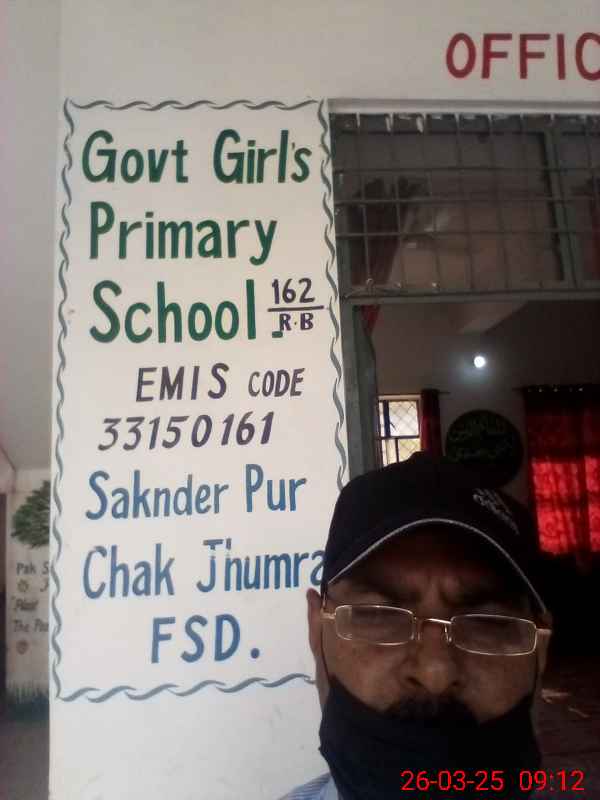 OFFIC
Govt Girl's
Primary
School. 162
R.B
EMIS CODE
33150161
Saknder Pur
Chak Jhumra
FSD.
Pak S
The
26-03-25 09:12